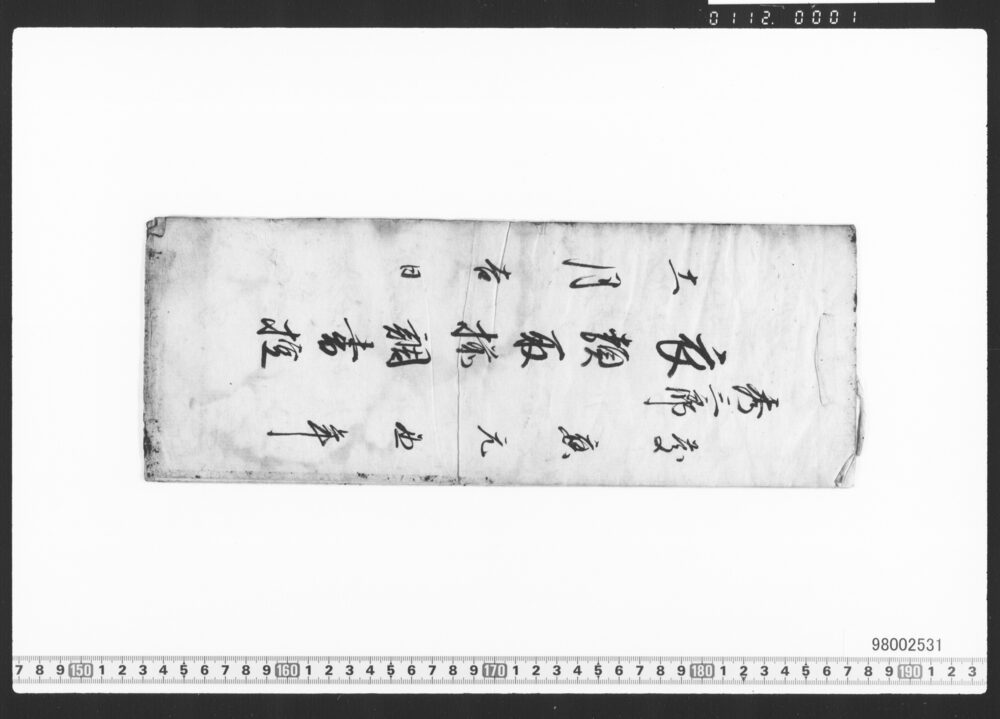 慶應元丑年
秀三郎
衣類取揃調書控
十一月吉日
0112. 0001
98002531
7 8 9 150 1 2 3 4 5 6 7 8 9 160 1 2 3 4 5 6 7 8 9 170 1 2 3 4 5 6 7 8 9 180 1 2 3 4 5 6 7 8 9 190 1 2 3